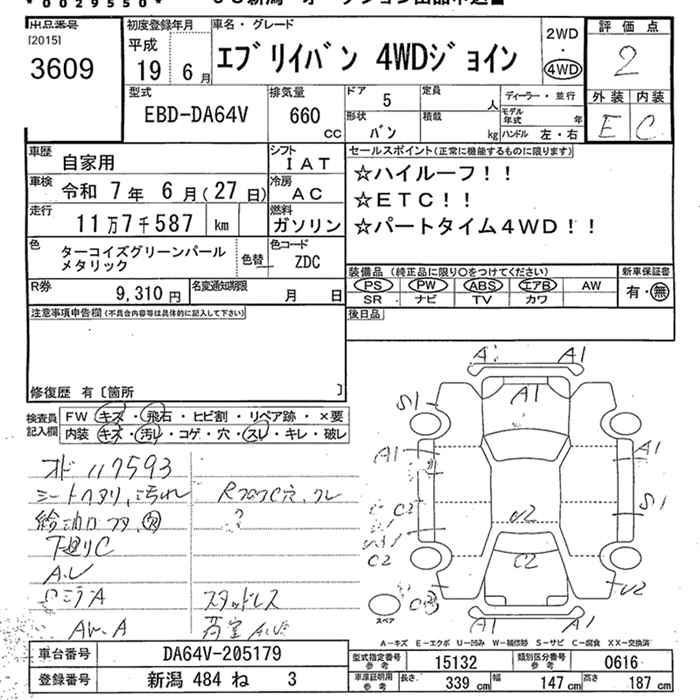 *0029550*
出品番号 初度登録年月 車名・グレード 2WD 評価点
[2015] 平成 ・ 2
3609 19年6月 エブリイバン 4WDジョイン 4WD 外装 内装
E C
型式 排気量 ドア 5 定員 人 ディーラー・並行
EBD-DA64V 660 cc 形状 バン 積載 kg モデル年式 年
ハンドル 左・右
車歴 自家用 シフト IAT セールスポイント(正常に機能するものに限ります)
車検 令和 7年 6月(27日) 冷房 AC ☆ハイルーフ!!
走行 11万7千587 km 燃料 ガソリン ☆ETC!!
☆パートタイム4WD!!
色 ターコイズグリーンパール 色替 色コード
メタリック ZDC
装備品(純正品に限り○をつけてください) 新車保証書
R券 9,310円 名変通知期限 月 日 PS PW ABS エアB AW 有・無
SR ナビ TV カワ
注意事項申告欄(不具合内容等は具体的に記入して下さい) 後日品
修復歴 有〔箇所 〕
検査員 FW キズ・飛石・ヒビ割・リペア跡・×要
記入欄 内装 キズ・汚レ・コゲ・穴・スレ・キレ・破レ
117593
下廻りC
スタッドレス
A1 A1
A1
S1
A1 A1
S1
C2
U2
C2 C2
U2
A1 A1
スペア
A-キズ E-エクボ U-凹み W-補修跡 S-サビ C-腐食 XX-交換済
車台番号 DA64V-205179 型式指定番号 参考 15132 類別区分番号 参考 0616
登録番号 新潟 484 ね 3 車庫証明用 参考 長さ 339cm 幅 147cm 高さ 187cm